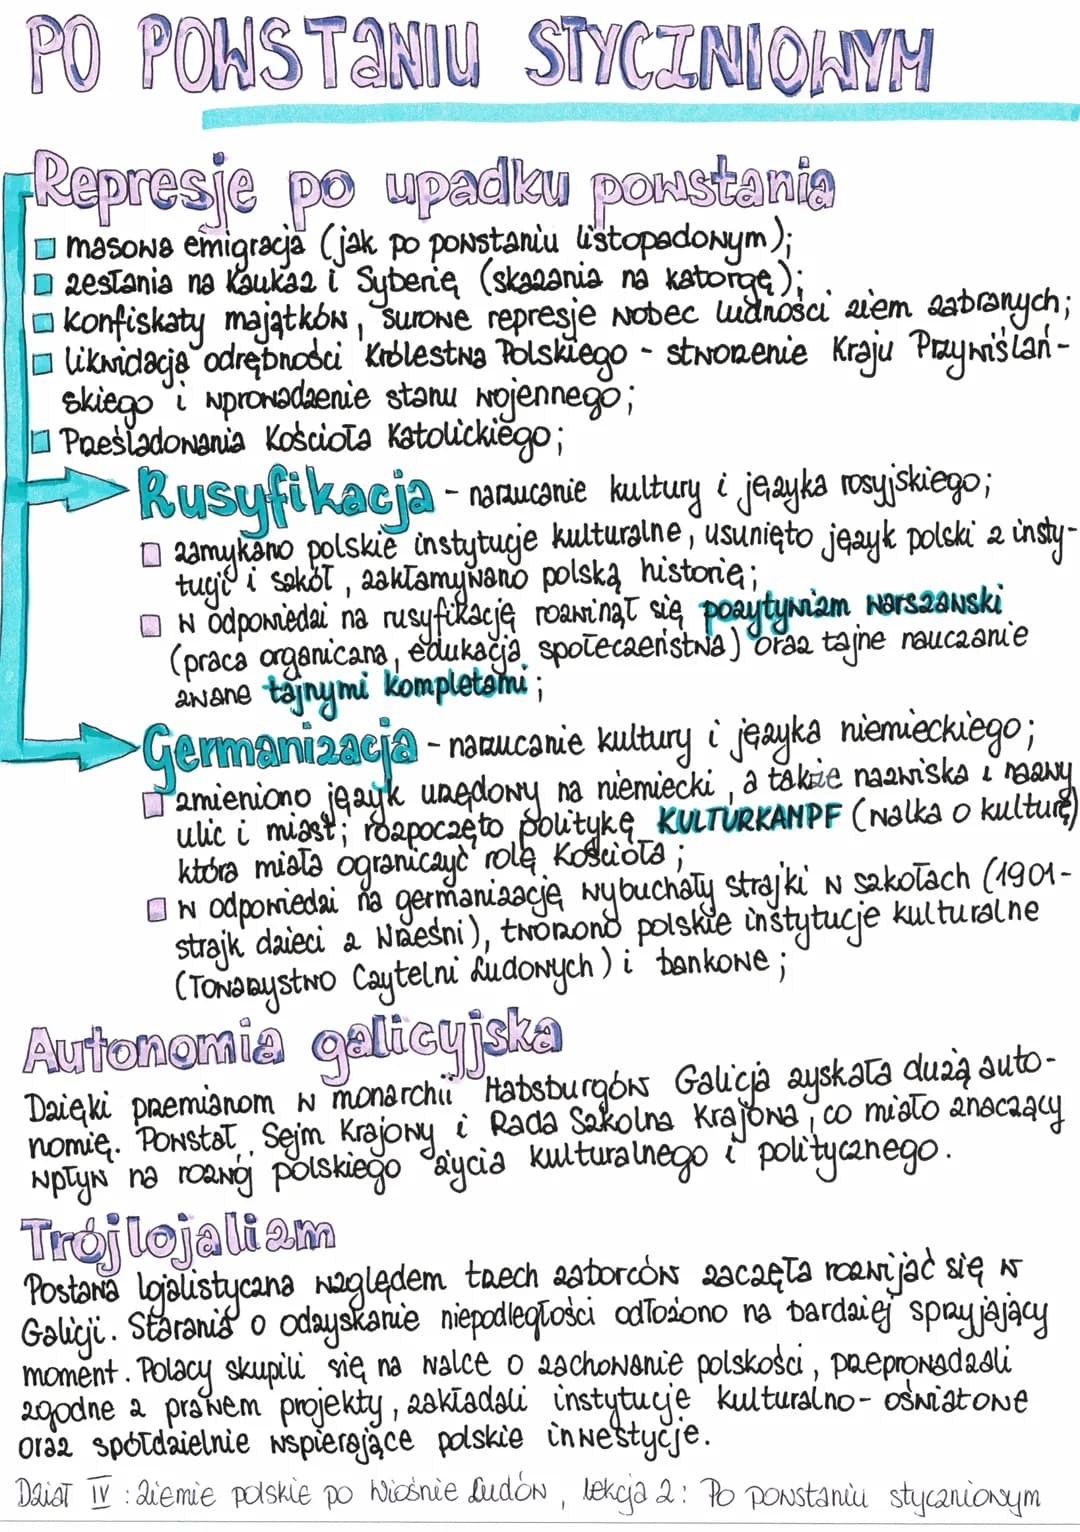 PO POWSTANIU STYCZNIOWYM
Represje po upadku powstania
masowa emigracja (jak po powstaniu listopadowym);
zesłania na Kaukaz i Syberię (skazania na katorgę);
konfiskaty majątków, surowe represje wobec ludności ziem zabranych;
likwidacja odrębności Królestwa Polskiego - stworzenie Kraju Przywiślań-
skiego i wprowadzenie stanu wojennego;
Prześladowania Kościoła Katolickiego;
Rusyfikacja - narzucanie kultury i języka rosyjskiego;
zamykano polskie instytucje kulturalne, usunięto język polski z insty-
tucji i szkół, zakłamywano polską historię;
w odpowiedzi na rusyfikację rozwinął się pozytywizm warszawski
(praca organiczna, edukacja społeczeństwa) oraz tajne nauczanie
zwane tajnymi kompletami;
Germanizacja - narzucanie kultury i języka niemieckiego;
zmieniono język urzędowy na niemiecki, a także nazwiska i nazwy
ulic i miast; rozpoczęto politykę KULTURKAMPF (walka o kulturę)
która miała ograniczyć rolę Kościoła;
w odpowiedzi na germanizację wybuchały strajki w szkołach (1901-
strajk dzieci z Wrześni), tworzono polskie instytucje kulturalne
(Towarzystwo Czytelni Ludowych) i bankowe;
Autonomia galicyjska
Dzięki przemianom w monarchii Habsburgów Galicja zyskała dużą auto-
nomię. Powstał Sejm Krajowy i Rada Szkolna Krajowa, co miało znaczący
wpływ na rozwój polskiego życia kulturalnego i politycznego.
Trójlojalizm
Postawa lojalistyczna względem trzech zaborców zaczęła rozwijać się w
Galicji. Starania o odzyskanie niepodległości odłożono na bardziej sprzyjający
moment. Polacy skupili się na walce o zachowanie polskości, przeprowadzali
zgodne z prawem projekty, zakładali instytucje kulturalno-oświatowe
oraz spółdzielnie wspierające polskie inwestycje.
Dział IV: Ziemie polskie po Wiośnie Ludów, lekcja 2: Po powstaniu styczniowym